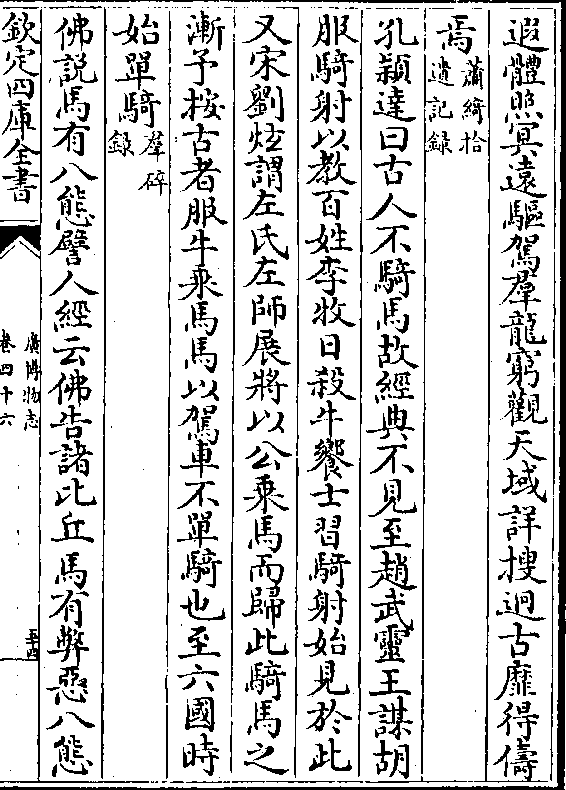 遐體照冥遠驅駕羣龍窮觀天域詳搜迥古靡得儔
焉蕭綺拾遺記録
孔穎達曰古人不騎馬故經典不見至趙武靈王謀胡
服騎射以教百姓李牧日殺牛饗士習騎射始見於此
又宋劉炫謂左氏左師展將以公乘馬而歸此騎馬之
漸予按古者服牛乘馬馬以駕車不單騎也至六國時
始單騎羣碎録
佛説馬有八態譬人經云佛告諸比丘馬有弊惡八態
欽定四庫全書
廣博物志
卷四十六
五十四